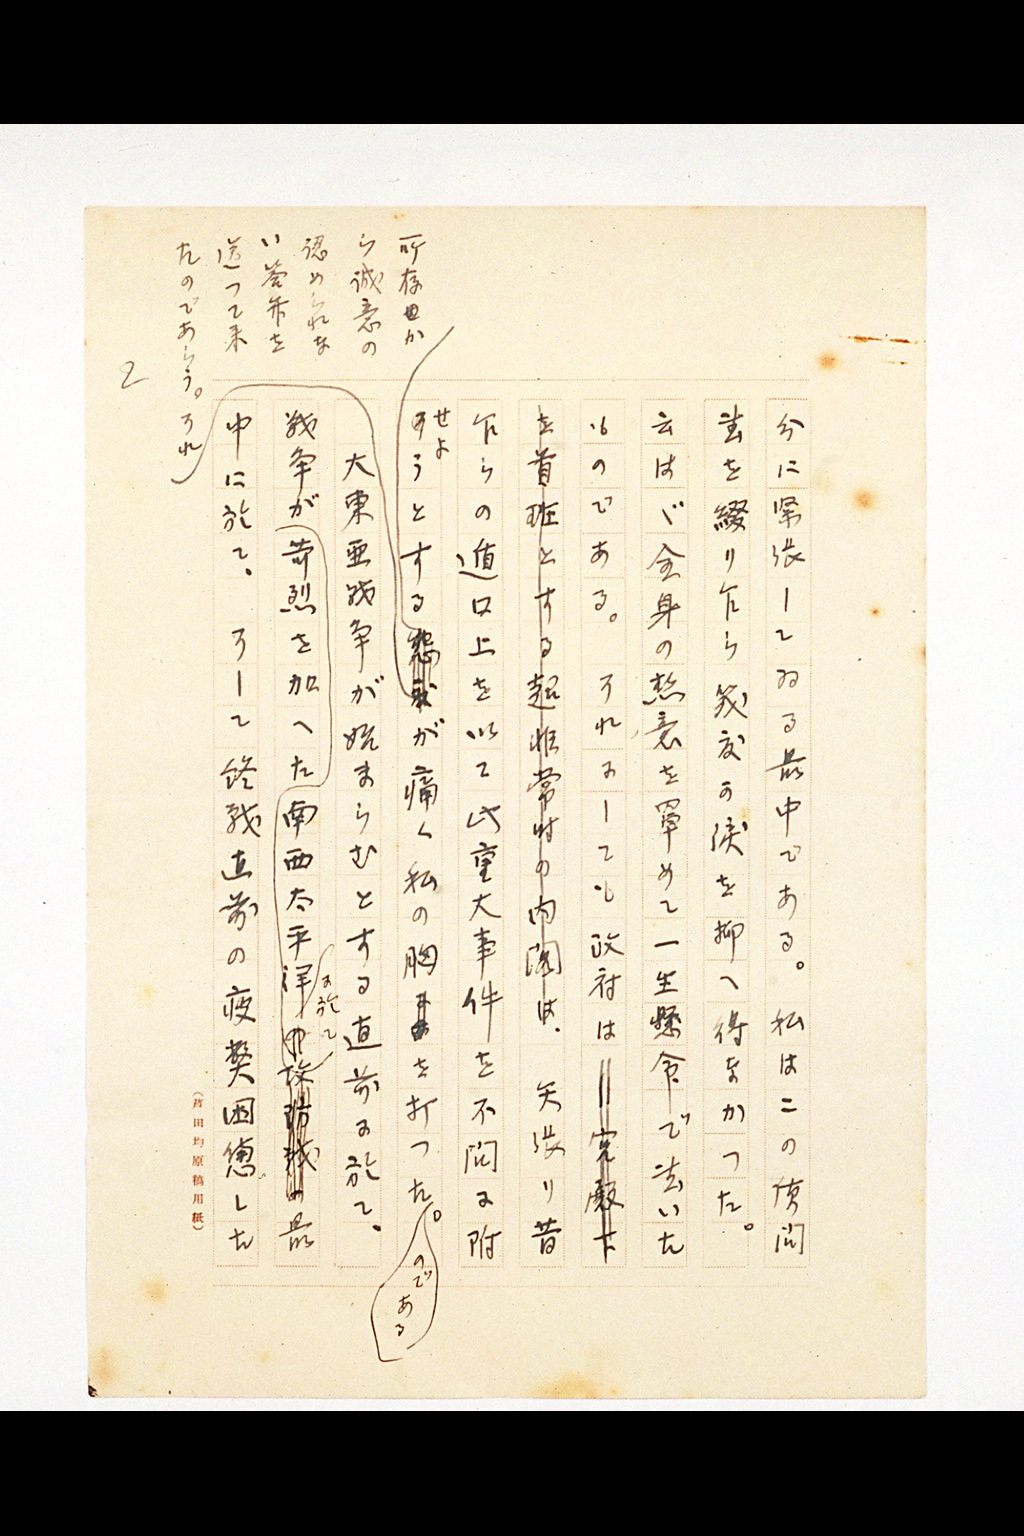 分に緊張してゐる最中である。私はこの質問
書を綴り乍ら幾度か涙を抑へ得なかつた。
云はゞ全身の熱意を罩めて一生懸命で書いた
ものである。それにしても政府は
を首班とする超非常時の内閣は、矢張り昔
乍らの遁口上を以て此重大事件を不問に附
せよ
うとする が痛く私の胸を打つた。
のである
大東亜戦争が始まらむとする直前に於て、
戦争が苛烈を加へた南西太平洋
に於て
攻防戦の最
中に於て、そして終戦直前の疲弊困憊した
所存
か
ら誠意の
認められな
い答弁を
送つて来
たのであらう。それ
2
(芦田均原稿用紙)